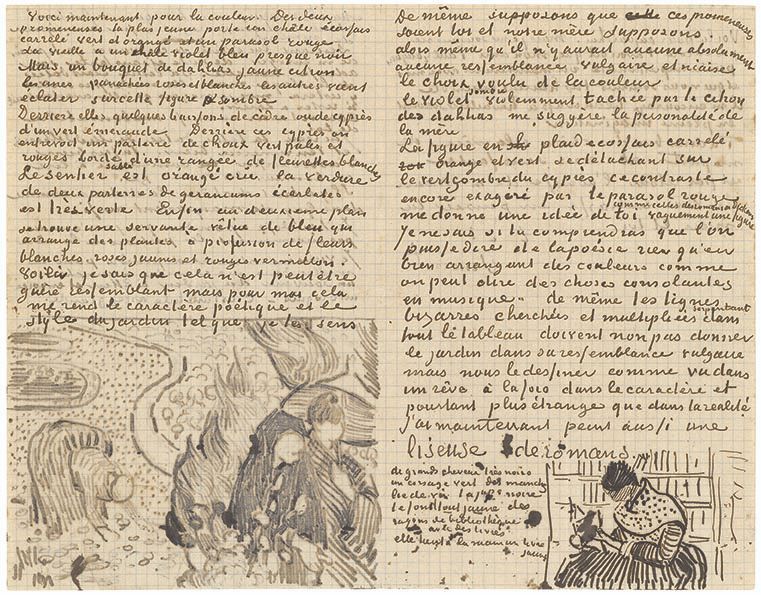 Voici maintenant pour la couleur. Des deux
promeneuses la plus jeune porte un châle écossais
carrelé vert et orangé et un parasol rouge
La vieille a un châle violet bleu presque noir
Mais un bouquet de dahlias jaune citron
les unes panachées roses et blanches les autres vient
éclater sur cette figure sombre
Derriere elles quelques buissons de cèdre ou de cyprès
d'un vert émeraude. Derriere ces cyprès on
entrevoit un parterre de choux verts pales et
rouges bordé d'une rangée de fleurettes blanches
Le sentier sable est orangé cru la verdure
de deux parterres de geraniums écarlates
est très verte Enfin au deuxieme plan
se trouve une servante vêtue de bleu qui
arrange des plantes à profusion de fleurs
blanches, roses jaunes et rouges vermillon.
Voilà je sais que cela n'est peut être
guère ressemblant mais pour moi cela
me rend le caractère poétique et le
style du jardin tel que je les sens
De même supposons que ces promeneuses
soient toi et notre mère supposons
alors même qu'il n'y aurait aucune absolument
aucune ressemblance vulgaire et niaise
le choix voulu de la couleur
le violet sombre violemment tachée par le citron
des dahlias me suggère la personalité de
la mère.
La figure en plaid ecossais carrelé
orange et vert se détachant sur
le vert sombre du cyprès ce contraste
encore exagéré par le parasol rouge
me donne une idée de toi vaguement une figure
comme celles des romans de Dickens
Je ne sais si tu comprendras que l'on
puisse dire de la poésie rien qu'en
bien arrangeant des couleurs comme
on peut dire des choses consolantes
en musique. de même les lignes
bizarres cherchées et multipliées serpentant dans
tout le tableau doivent non pas donner
le jardin dans sa ressemblance vulgaire
mais nous le dessiner comme vu dans
un rêve à la fois dans le caractère et
pourtant plus étrange que dans la réalité
J'ai maintenant peint aussi une
liseuse de romans.
de grands cheveux très noirs
un corsage vert des manches
lie de vin la jupe noire
le fond tout jaune des
rayons de bibliothèque
avec des livres
elle tient à la main un livre
jaune